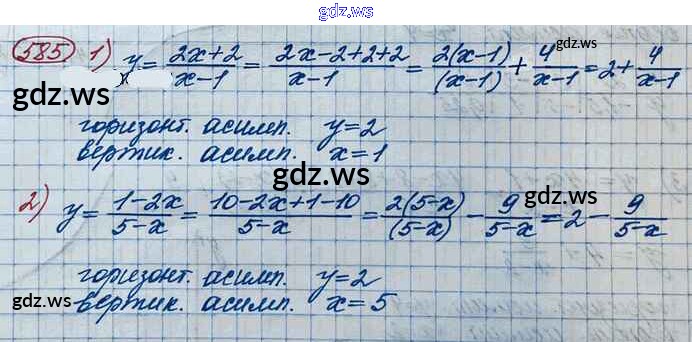 gdz.ws
585 1) y = (2x+2)/(x-1) = (2x-2+2+2)/(x-1) = 2(x-1)/(x-1) + 4/(x-1) = 2 + 4/(x-1)
gdz.ws
gdz.ws
gdz.ws
горизонт. асимп. y=2
вертик. асимп. x=1
gdz.ws
2) y = (1-2x)/(5-x) = (10-2x+1-10)/(5-x) = 2(5-x)/(5-x) - 9/(5-x) = 2 - 9/(5-x)
gdz.ws
горизонт. асимп. y=2
вертик. асимп. x=5
gdz.ws
gdz.ws